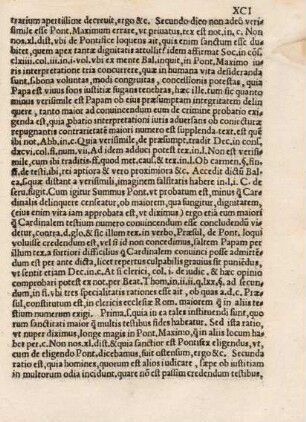 XCI
trarium apertissime decreuit, ergo &c. Secundo dico non adeò veri
simile esse Pont. Maximum errare, vt priuatus, tex est not, in c. Non
nos.xl.dist. vbi de Pontifice loquens ait, quis enim sanctum esse du
bitet, quem apex tantæ dignitatis attollit? idem affirmat Soc. in cõs.
clxiii.col.iii.in.i.vol. vbi ex mente Bal. inquit, in Pont. Maximo iu
ris interpretatione tria concurrere, quæ in humana vita desideranda
sunt, s. bona voluntas, modi congruitas, concessionis potestas, quia
Papa est viuus fons iustitiæ fugans tenebras, hæc ille. tum sic quanto
minus verisimile est Papam ob eius præsumptam integritatem delin
quere, tanto maior ad conuincendum eum de crimine probatio exi
genda est, quia plobis interpretationi iuris aduersans ob coniecturæ
repugnantis contrarietatem maiori numero est supplenda. text. est quẽ
ibi not. Abb. in c. Quia verisimile, de præsumpt. tradit Dec. in consi.
dxcvi.col.fi.num.vii. Ad idem adduci potest tex. in.l. Non est verisi
mile, cum ibi traditis. ff. quod met. caus. & tex. in.l. Ob carmen. §. fin.
ff. de testi. ibi, rei aptiora & vero proximiora &c. Accedit dictũ Bal
ta, s. quæ distant a verisimili, imaginem falsitatis habere in.l.i. C. de
seru. fugit. Cum igitur Summus Pont. vt probatum est, minus q̃ Car
dinalis delinquere censeatur, ob maiorem, qua fungitur, dignitatem,
(eius enim vita iam approbata est, vt diximus) ergo etiã eum maiori
q̃ Cardinalem testium numero conuincendum esse concludendũ vi
detur, contra. d. glo. & sic illum tex. in verbo, Præsul, de Pont. loqui
voluisse credendum est, vel si id non concedimus, saltem Papam per
illum tex. a fortiori difficilius q̃ Cardinalem conuinci posse admitte
dum est per ante dicta, licet repertus culpabilis grauius sit puniẽdus,
vt sentit etiam Dec. in.c. At si clerici, col. i. de iudic. & hæc opinio
comprobari potest ex not. per Beat. Thom. in.ii.ii.q.lxx.§. ad secun
dum, in fi. vbi tres specialitatis rationes esse ait, ob quas a. d. c. Præ
sul, constitutum est, in clericis ecclesiæ Rom. maiorem q̃ in aliis tes
tium numerum exigi. Prima, (quia in ea tales instituendi sunt, quo
rum sanctitati maior q̃ multis testibus fides habeatur. Sed ista ratio,
vt nuper diximus, longe magis in Pont. Maximo, q̃ in aliis locum ha
bet per. c. Non nos. xl. dist. & quia sanctior est Pontifex eligendus, vt,
cum de eligendo Pont. dicebamus, fuit ostensum, ergo &c. Secunda
ratio est, quia homines, quorum est alios iudicare, sæpe ob iustitiam
in multorum odia incidunt, quare nõ est passim credendum testibus,